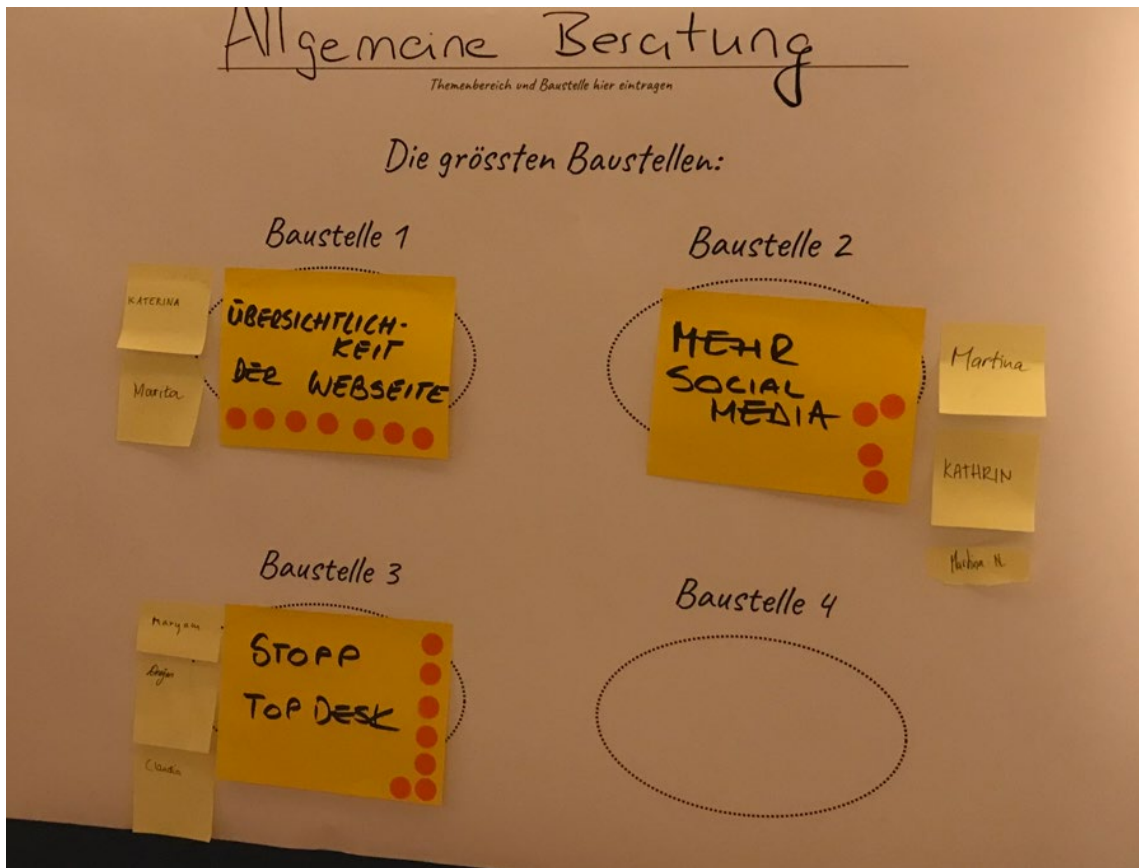 Allgemeine Beratung
Themenbereich und Baustelle hier eintragen
Die grössten Baustellen:
Baustelle 1
KATERINA
Marita
ÜBERSICHTLICH-
KEIT
DER WEBSEITE
Baustelle 2
MEHR
SOCIAL
MEDIA
Martina
KATHRIN
Martina N.
Baustelle 3
Maryam
Claudia
STOPP
TOP DESK
Baustelle 4